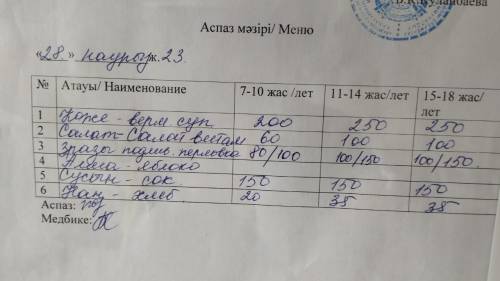 Б.К.Кулайбаева
Аспаз мәзірі/ Меню
«28.» наурыз ж. 23.
№ Атауы/ Наименование 7-10 жас /лет 11-14 жас/лет 15-18 жас/
лет
1 Көже - верм. суп 200 250 250
2 Салат- Салат витам 60 100 100
3 Зразы подлив. перловка 80/100 100/150 100/150.
4 Алма - яблоко
5 Сусын - сок 150 150 150
6 Нан - хлеб 20 35 35
Аспаз:
Медбике: